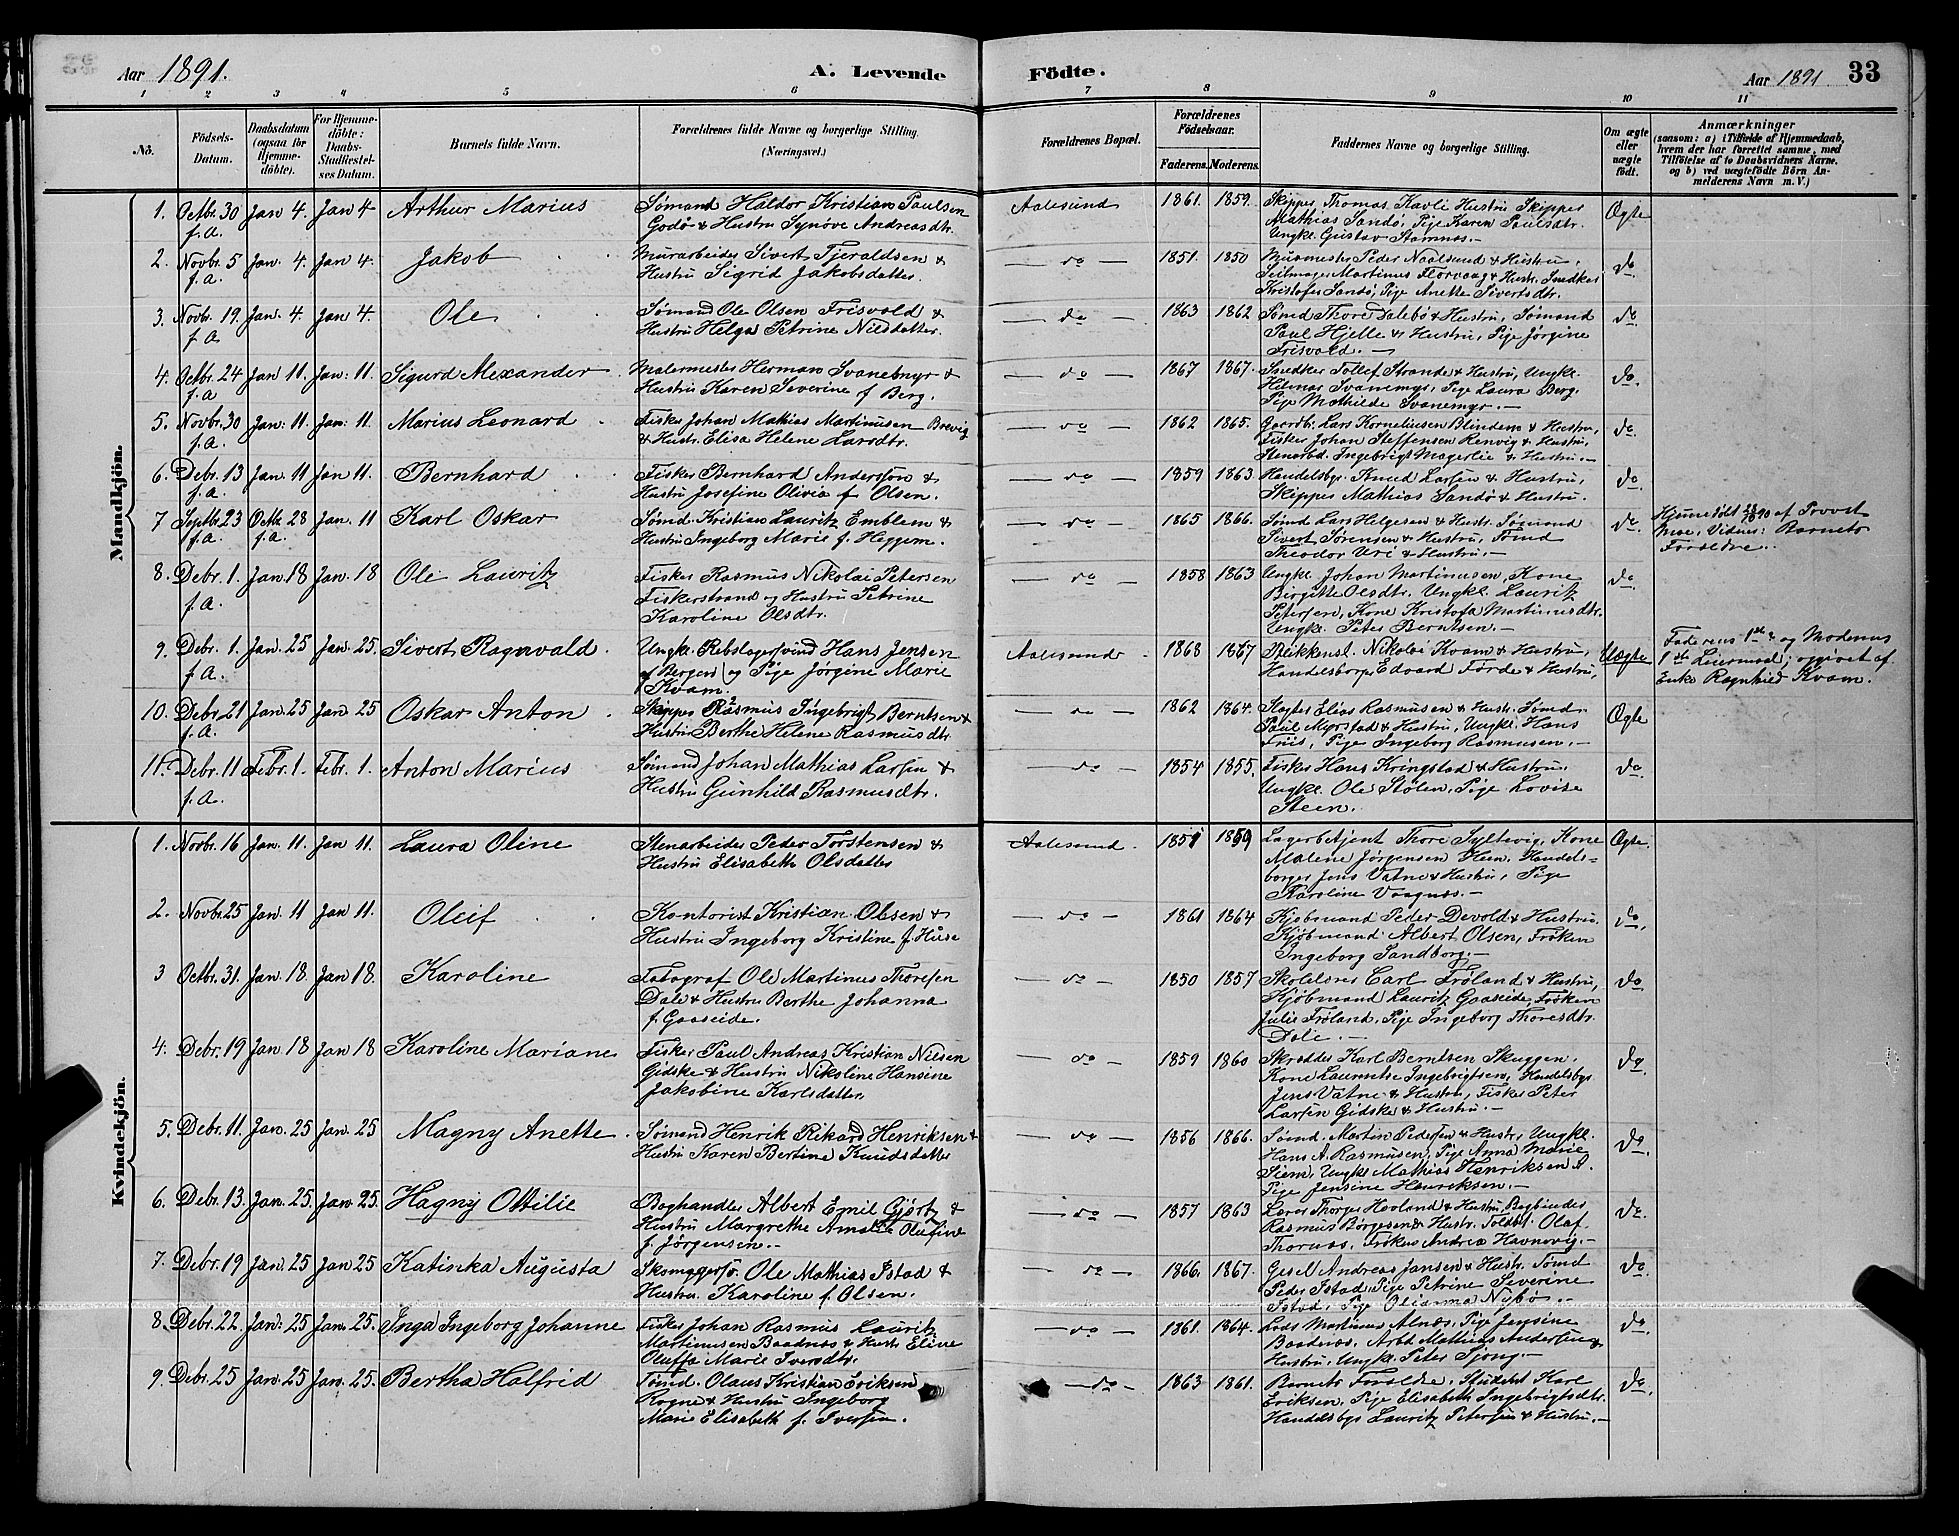 Aar 1891. A. Levende Födte. Aar 1891 33
1 2 3 4 5 6 7 8 9 10 11
No. Födsels-Datum. Daabsdatum (ogsaa for Hjemme-döbte). For Hjemme-döbte: Daabs-Stadfæstel-ses Datum. Barnets fulde Navn. Forældrenes fulde Navne og borgerlige Stilling. (Næringsvei.) Forældrenes Bopæl. Forældrenes Födselsaar. Faderens. Moderens. Faddernes Navne og borgerlige Stilling. Om ægte eller uægte födt. Anmærkninger
(saasom: a) i Tilfælde af Hjemmedaab, hvem der har forrettet samme, med Tilföielse af to Daabsvidners Navne, og b) ved uægtefödte Börn An-melderens Navn m. V.)
Mandkjön.
1. Octbr. 30 f.A. Jan 4. Jan 4 Arthur Marius Sömand Haldor Kristian Paulsen
Godö & Hustru Synöve Andreasdtr. Aalesund 1861. 1859. Skipper Thomas Kavli Hustru Skipper
Mathias Sandö, Pige Karen Paulsdtr.
Ungkl. Gustav Stamnæs.- Ægte
2. Novbr. 5 f.A. Jan. 4. Jan 4. Jakob Murarbeider Sivert Fjeraldsen &
Hustru Sigrid Jakobsdatter. do 1851. 1850 Murmester Peder Naalsund & Hustru,
Seilmager Martinus Flörvaag & Hustr. Snedker
Kristofer Sandö, Pige Anette Sivertsdtr. do
3. Novbr. 19. f A Jan. 4. Jan 4. Ole Sömand Ole Olsen Frisvold &
Hustru Helga Petrine Nilsdatter. do 1863 1862 Sömd Thore Dalebö & Hustru, Sömand
Paul Hjelle & Hustru, Pige Jörgine
Frisvold.- do.
4. Octbr. 24 f.A Jan 11. Jan: 11. Sigurd Alexander Malermester Herman Svanemyr &
Hustru Karen Severine f Berg. do 1867 1867. Snedker Tollef Strande & Hustru, Ungkl.
Hilmar Svanemyr, Pige Laura Berg.
Pige Mathilde Svanemyr.- do.
5. Novbr. 30 f.A. Jan: 11. Jan: 11. Marius Leonard Fisker Johan Mathias Martinusen Brevig
& Hustr. Elisa Helene Larsdtr. do 1862 1865. Gaardb. Lars Korneliusen Blindem & Hustru,
Fisker Johan Steffensen Renvig & Hustru,
Stenarbd. Ingebrigt Magerlie & Hustru.- do.
6. Debr. 13 f.A. Jan 11 Jan 11. Bernhard Fisker Bernhard Andersson &
Hustru Josefine Olivia f Olsen. do 1859 1863 Handelsbgr. Knud Larsen & Hustru,
Skipper Mathias Sandö & Hustru. do.
7 Septbr. 23 f.A. Octbr. 28 f.A. Jan. 11 Karl Oskar Sömd. Kristian Lauritz Emblem &
Hustru Ingeborg Marie f. Heggem. do 1865 1866. Sömd Lars Helgesen & Hustr. Sömand
Sivert Sörensen & Hustru, Sömd
Theodor Uri & Hustru.- do. Hjemmedöbt af Provst
Moe, Vidner: Barnets
Forældre.
8. Debr. 1. f.A. Jan 18 Jan 18 Ole Lauritz Fisker Rasmus Nikolai Petersen
Fiskerstrand og Hustru Petrine
Karoline Olsdtr. do 1858 1863 Ungkl. Johan Martinusen, Kone
Birgitte Olsdtr. Ungkl Lauritz
Petersen, Kone Kristofa Martinusdtr.
Ungkl. Peter Berntsen.- do.
9. Debr. 1. f.A. Jan. 25 Jan. 25. Sivert Ragnvald. Ungk. Rebslagersvend Hans Jensen
af Bergen og Pige Jörgine Marie
Kvam. Aalesund 1868 1867 Blikkensl. Nikolai Kvam & Hustru,
Handelsborger Edvard Förde & Hustru, Uægte Faderens 1ste og Moderens
1ste Leiermaal; opgivet af
Enke Ragnhild Kvam.
10. Debr. 21 f.A. Jan. 25 Jan 25 Oskar Anton Skipper Rasmus Ingebrigt Berntsen &
Hustru Berthe Helene Rasmusdtr. do 1862 1864. Slagter Elias Rasmusen & Hustr. Sömd.
Paul Myrstad & Hustru, Ungkl. Hans
Friis, Pige Ingeborg Rasmusen.- Ægte
11. Debr. 11 f.A. Febr. 1. Febr. 1. Anton Marius Sömand Johan Mathias Larsen &
Hustru Gunhild Rasmusdtr. do 1854 1855. Fisker Hans Kringstad & Hustru,
Ungkl. Ole Stölen, Pige Lovise
Steen. do.
Kvindekjön.
1. Novbr. 16 Jan. 11. Jan 11. Laura Oline Stenarbeider Peder Torstensen &
Hustru Elisabeth Olsdatter Aalesund. 1859 Lagerbetjent Thore Syltevig, Kone
Malene Jörgensen Heen, Handels-
borger Jens Vatne & Hustru, Pige
Karoline Vaagnæs.- Ægte.
2. Novbr. 25 Jan. 11 Jan 11. Oleif Kontorist Kristian Olsen &
Hustru Ingeborg Kristine f. Huse do 1861 1864 Kjöbmand Peder Devold & Hustru,
Kjöbmand Albert Olsen, Fröken
Ingeborg Sandborg.- do.
3 Octbr. 31. Jan. 18 Jan 18. Karoline Fotograf Ole Martinus Thoresen
Dale & Hustru Berthe Johanna
f. Gaaseide. do 1850 1857 Carl Fröland & Hustru,
Kjöbmand Lauritz Gaaseide, Fröken
Julie Fröland, Pige Ingeborg Thoresdtr.
Dale.- do.
4. Debr. 19 Jan 18 Jan 18 Karoline Mariane Fisker Paul Andreas Kristian Nilsen
Gidske & Hustru Nikoline Hansine
Jakobine Karlsdatter. do 1859 1860 Skrædder Karl Berntsen Skuggen.
Kone Laurentse Ingebrigtsen, Handelsbgr
Jens Vatne & Hustru, Fisker Peter
Larsen Gidske & Hustru.- do.
5. Debr. 11. Jan. 25 Jan. 25 Magny Anette. Sömand Henrik Rikard Henriksen &
Hustru Karen Bertine Knudsdatter do 1856 1866. Sömd. Martin Pedersen & Hustr. Ungkl.
Hans A. Rasmusen, Pige Anna Marie
Siem, Ungkl Mathias Henriksen &
Pige Jensine Henriksen.- do.
6. Debr. 13. Jan. 25. Jan. 25. Hagny Ottilie Boghandler Albert Emil Gjörtz &
Hustru Margrethe Amalie Olufine
f. Jörgensen.- do 1857 1863 Lærer Thorger Hovland & Hustru Bogbinder
Rasmus Börgesen & Hustr. Toldbt. Olaf
Thornæs. Fröken Andrea Havnevig.- do.
7. Debr. 19 Jan. 25 Jan 25 Katinka Augusta Skomagersv. Ole Mathias Istad &
Hustru Karoline f Olsen. do 1866. 1867. Gesel Andreas Jansen & Hustr. Sömd
Peder Istad, Pige Petrine Severine
Istad, Pige Olianna Nybö.- do.
8. Debr. 22. Jan: 25 Jan. 25. Inga Ingeborg Johanne Fisker Johan Rasmus Lauritz
Martinusen Baadnæs & Hustr Eline
Oluffa Marie Iversdtr. do 1861. 1864. Lods Martinus Alnæs, Pige Jensine
Baadnæs, Arbd Mathias Andersen &
Hustru, Ungkl. Peter Sjong.- do.
9. Debr. 25 Jan. 25 Jan. 25. Bertha Halfrid Sömd. Olaus Kristian Eriksen
Rogne & Hustru Ingeborg
Marie Elisabeth f. Iversen. do 1863 1861. Barnets Forældre, Student Karl
Eriksen, Pige Elisabeth Ingebrigtsdtr.
Handelsbgr Lauritz Petersen & Hustru.- do.